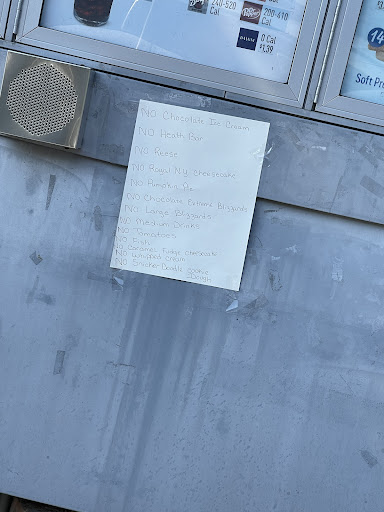 240-520
Cal
200-410
Cal
0 Cal
$1.39
Soft Pr
NO Chocolate Ice Cream
NO Heath Bar
NO Reese
NO Royal N.Y. Cheesecake
NO Pumpkin Pie
NO Chocolate Extreme Blizzards
NO Large Blizzards
NO Medium Drinks
NO Tomatoes
NO Fish
NO Caramel Fudge Cheesecake
NO Whipped Cream
NO Snicker Doodle Cookie
Dough